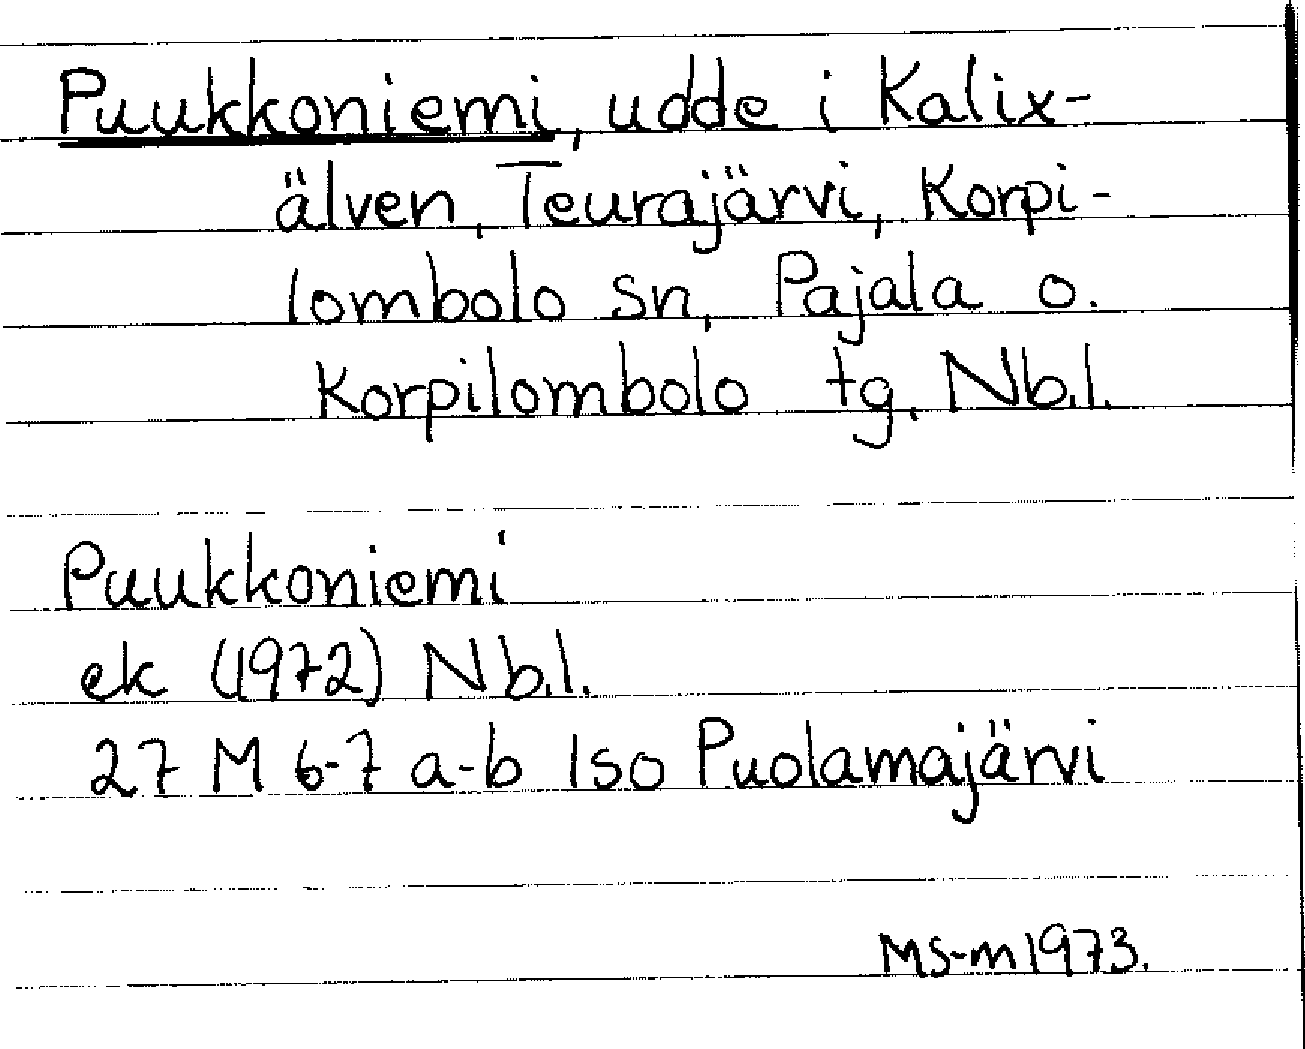 Puukkoniemi, udde i Kalix-
älven, Teurajärvi, Korpi-
lombolo sn, Pajala o.
Korpilombolo tg, Nb.l.
Puukkoniemi
ek (1972) Nb.l.
27 M 6-7 a-b Iso Puolamajärvi
MS-m 1973.